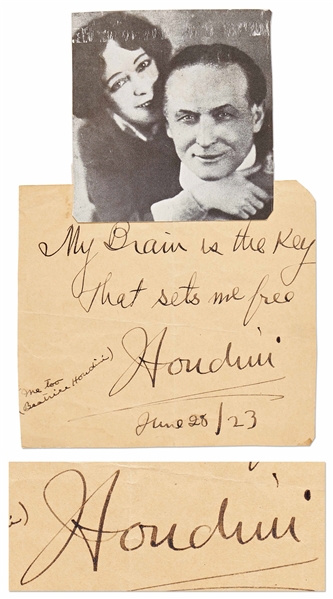 My Brain is the Key
That sets me free
Houdini
(Me too
Beatrice Houdini)
June 28/23
Houdini